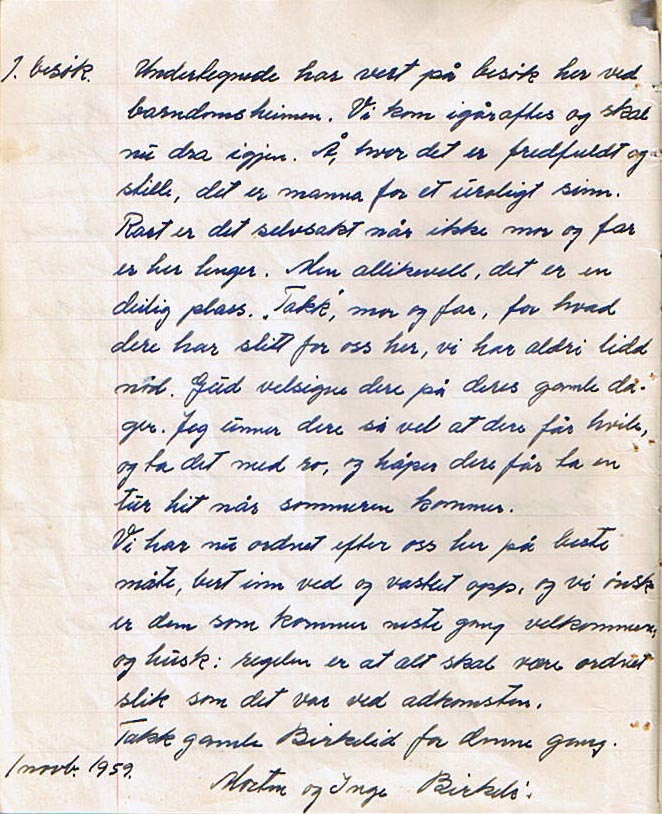 1. besøk. Undertegnede har vert på besøk her ved
barndomsheimen. Vi kom igåraftes og skal
nu dra igjen. Å, hvor det er fredfuldt og
stille, det er manna for et uroligt sinn.
Rart er det selvsakt når ikke mor og far
er her lenger. Men allikevell, det er en
deilig plass. "Takk", mor og far, for hvad
dere har slitt for oss her, vi har aldri lidd
nød. Gud velsigne dere på deres gamle da-
ger. Jeg unner dere så vel at dere får hvile,
og ta det med ro, og håper dere får ta en
tur hit når sommeren kommer.
Vi har nu ordnet efter oss her på beste
måte, bert inn ved og vasket opp, og vi ønsk
er dem som kommer neste gang velkommen,
og husk: regelen er at alt skal være ordnet
slik som det var ved adkomsten.
Takk gamle Birkelid for denne gang.
1 novb. 1959.
Morten og Inge Birkeli.